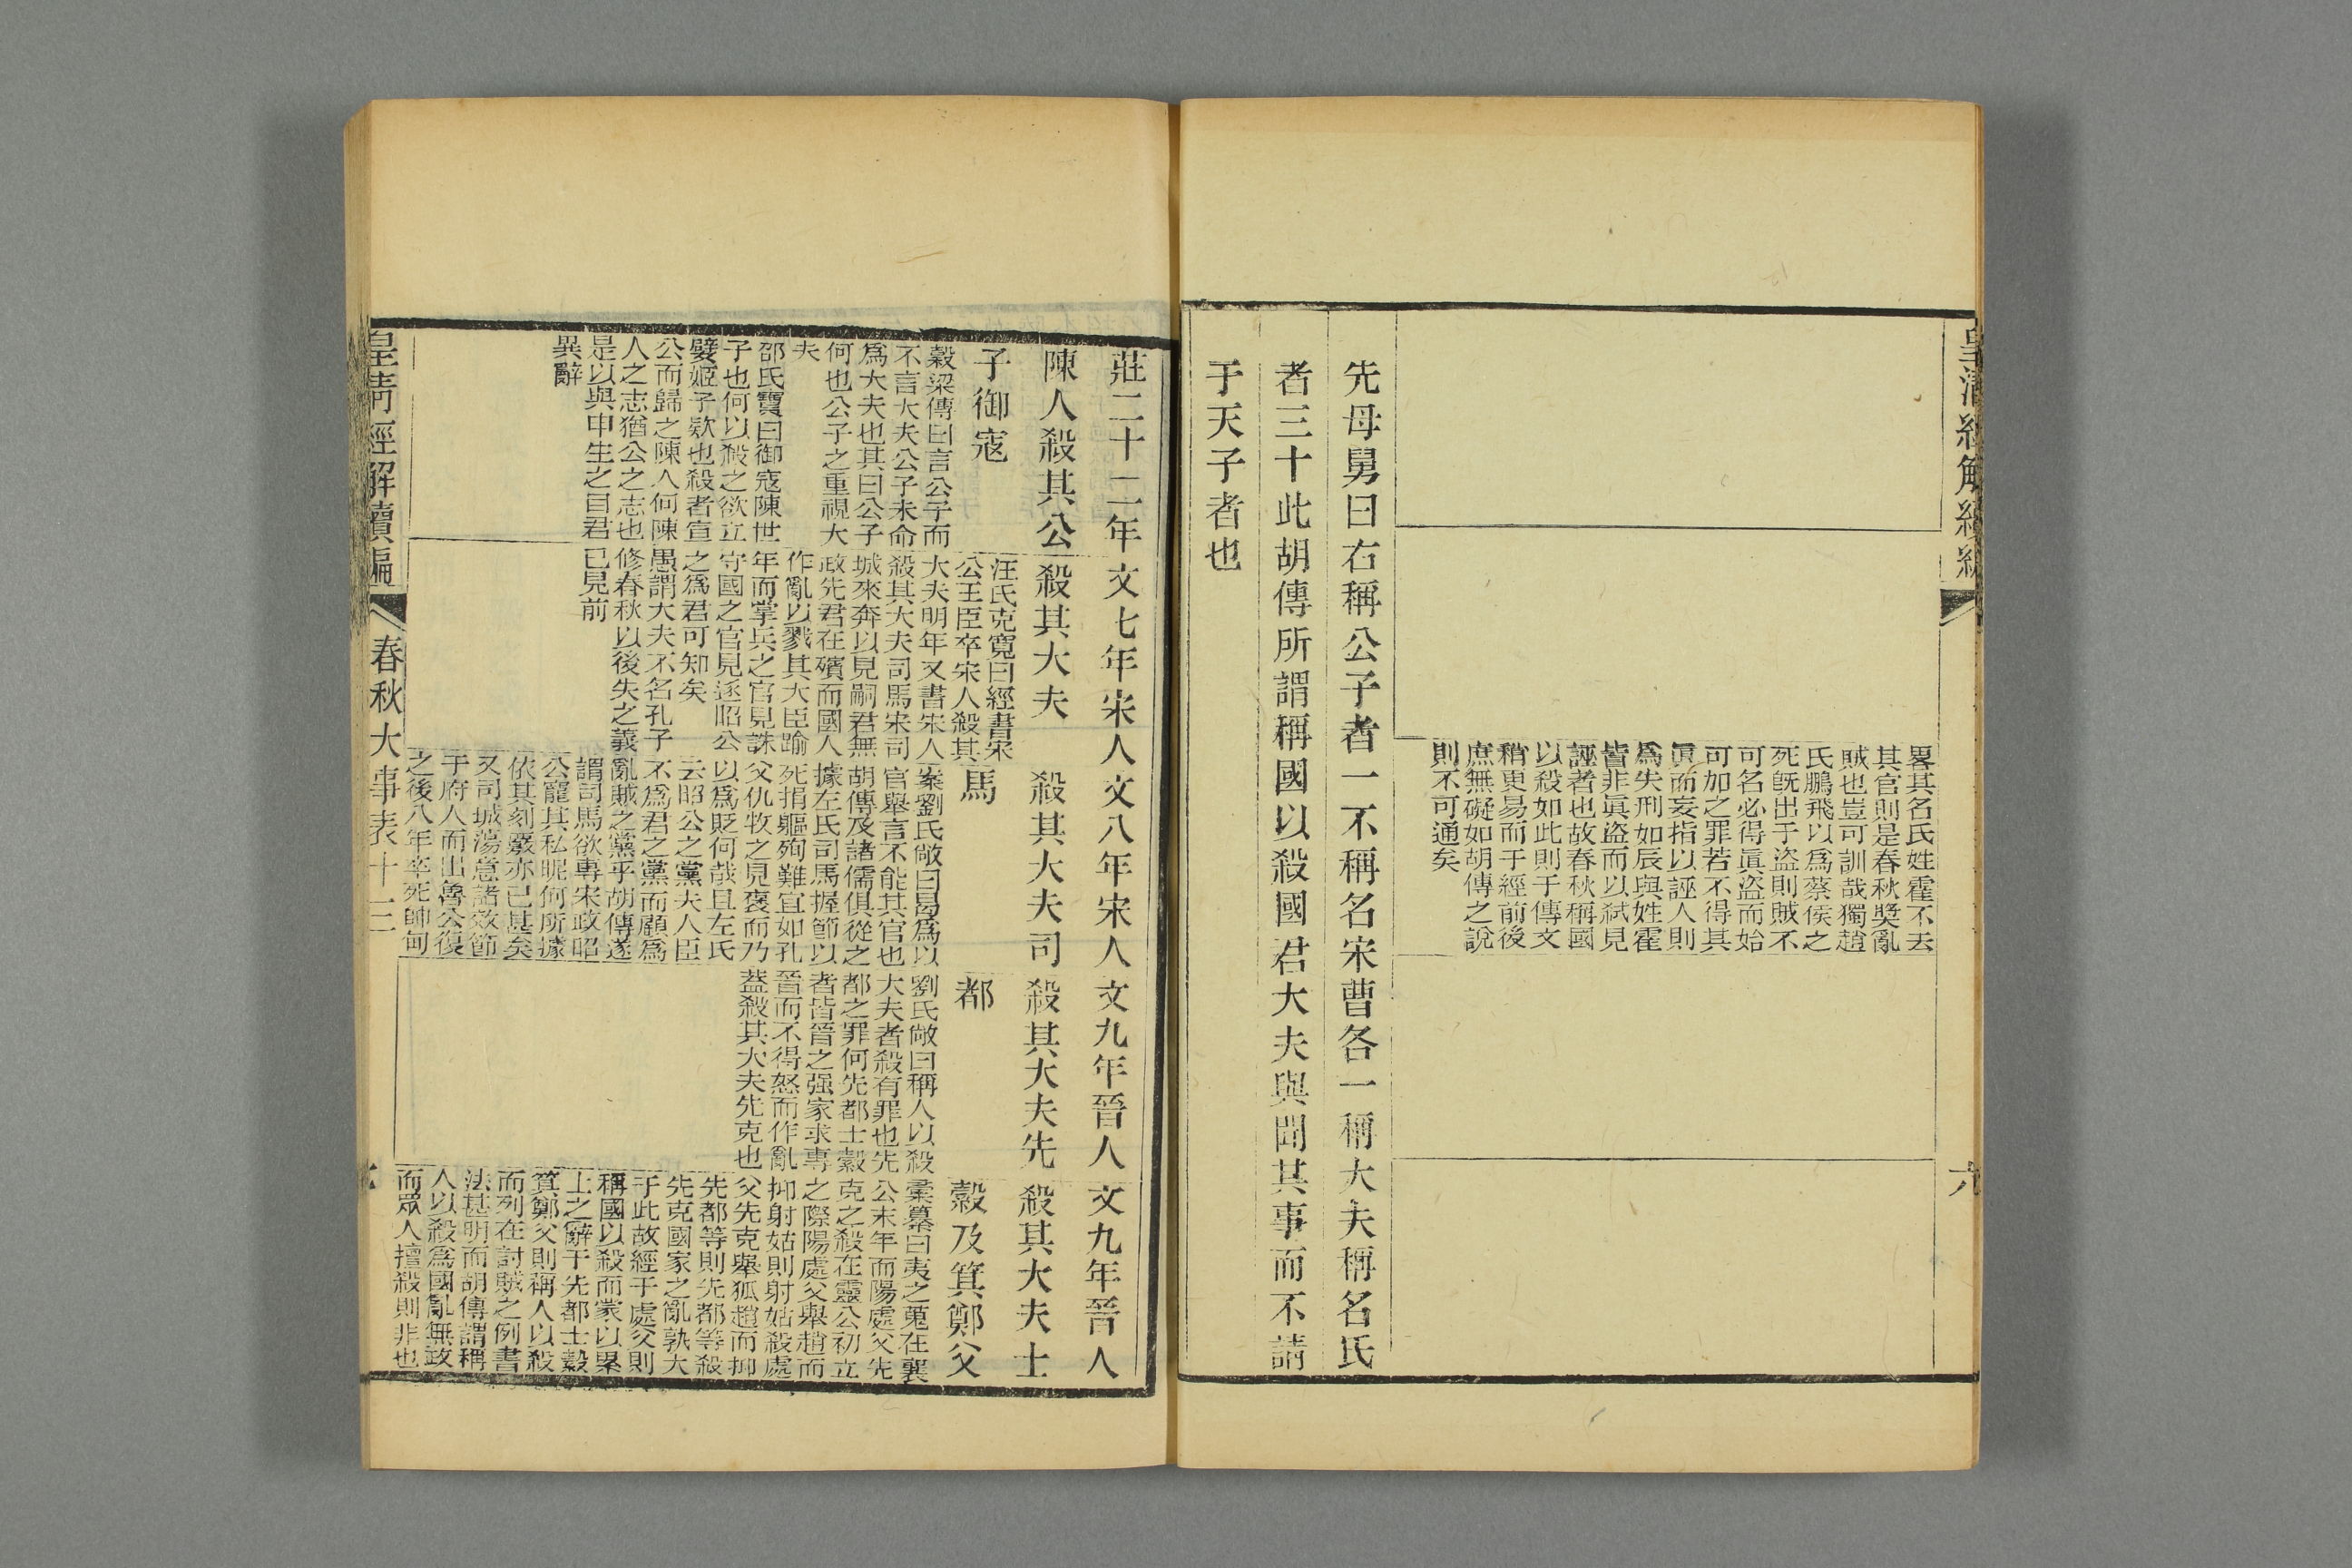 六
畧其名氏姓霍不去
其官則是春秋奬亂
賊也豈可訓哉獨趙
氏鵬飛以爲蔡侯之
死旣出于盜則賊不
可名必得眞盜而始
可加之罪若不得其
眞而妄指以誣人則
爲失刑如辰與姓霍
皆非眞盜而以弑見
誣者也故春秋稱國
以殺如此則于傳文
稍更易而于經前後
庶無礙如胡傳之說
則不可通矣
先母舅曰右稱公子者一不稱名宋曹各一稱大夫稱名氏
者三十此胡傳所謂稱國以殺國君大夫與聞其事而不請
于天子者也
莊二十二年
陳人殺其公
子御寇
穀梁傳曰言公子而
不言大夫公子未命
爲大夫也其曰公子
何也公子之重視大
夫
邵氏寶曰御寇陳世
子也何以殺之欲立
嬖姬子欵也殺者宣
公而歸之陳人何陳
人之志猶公之志也
是以與申生之目君
異辭
文七年宋人
殺其大夫
汪氏克寬曰經書宋
公王臣卒宋人殺其
大夫明年又書宋人
殺其大夫司馬宋司
城來奔以見嗣君無
政先君在殯而國人
作亂以戮其大臣踰
年而掌兵之官見誅
守國之官見逐昭公
之爲君可知矣
愚謂大夫不名孔子
修春秋以後失之義
已見前
文八年宋人
殺其大夫司
馬
案劉氏敞曰曷爲以
官舉言不能其官也
胡傳及諸儒俱從之
據左氏司馬握節以
死捐軀殉難宜如孔
父仇牧之見褒而乃
以爲貶何哉且左氏
云昭公之黨夫人臣
不爲君之黨而顧爲
亂賊之黨乎胡傳遂
謂司馬欲專宋政昭
公寵其私昵何所據
依其刻覈亦已甚矣
又司城蕩意諸效節
于府人而出魯公復
之後八年卒死帥甸
文九年晉人
殺其大夫先
都
劉氏敞曰稱人以殺
大夫者殺有罪也先
都之罪何先都士縠
者皆晉之强家求專
晉而不得怒而作亂
葢殺其大夫先克也
文九年晉人
殺其大夫士
縠及箕鄭父
彙纂曰夷之蒐在襄
公末年而陽處父先
克之殺在靈公初立
之際陽處父舉趙而
抑射姑則射姑殺處
父先克舉狐趙而抑
先都等則先都等殺
先克國家之亂孰大
于此故經于處父則
稱國以殺而蒙以累
上之辭于先都士縠
箕鄭父則稱人以殺
而列在討賊之例書
法甚明而胡傳謂稱
人以殺爲國亂無政
而眾人擅殺則非也
皇清經解續編
春秋大事表十三